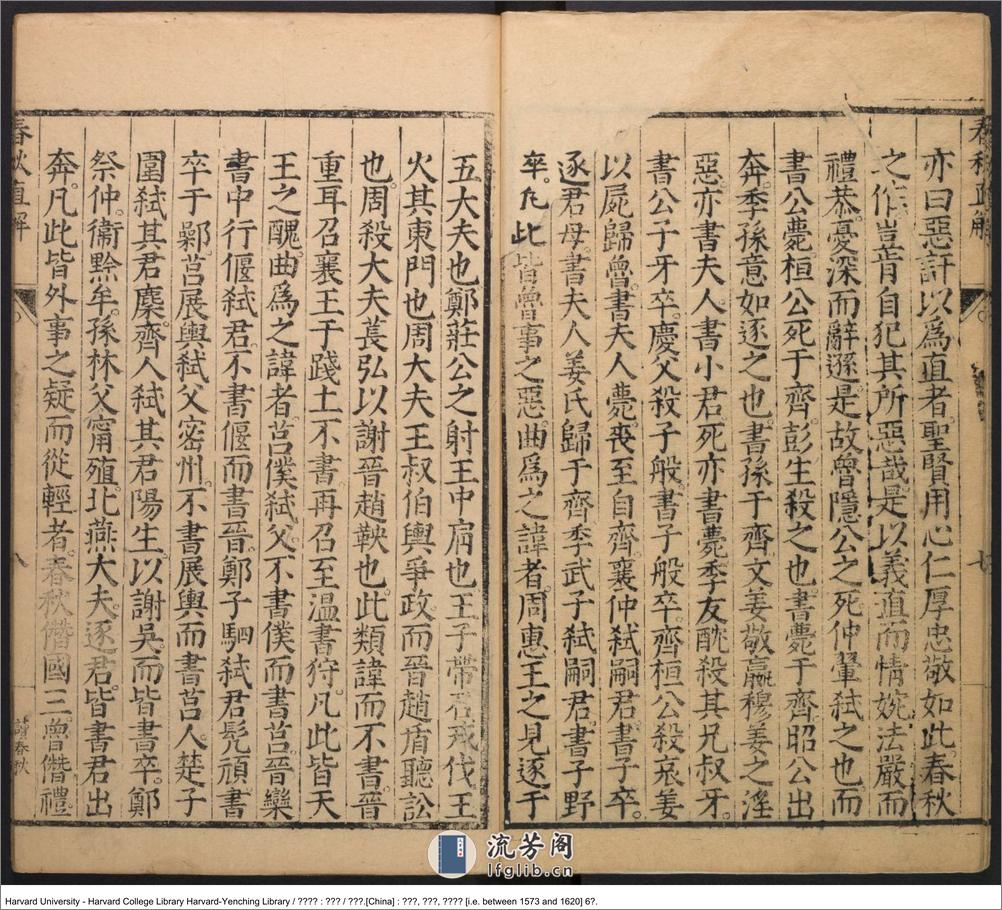 春秋直解
七
亦曰惡訐以為直者聖賢用心仁厚忠敬如此春秋
之作豈肯自犯其所惡哉是以義直而情婉法嚴而
禮恭憂深而辭遜是故魯隱公之死仲翬弒之也而
書公薨桓公死于齊彭生殺之也書薨于齊昭公出
奔季孫意如逐之也書孫于齊文姜敬嬴穆姜之淫
惡亦書夫人書小君死亦書薨季友酖殺其兄叔牙
書公子牙卒慶父殺子般書子般卒齊桓公殺哀姜
以屍歸魯書夫人薨喪至自齊襄仲弒嗣君書子卒
逐君母書夫人姜氏歸于齊季武子弒嗣君書子野
卒凡此皆魯事之惡曲為之諱者周惠王之見逐于
五大夫也鄭莊公之射王中肩也王子帶召戎伐王
火其東門也周大夫王叔伯輿爭政而晉趙盾聽訟
也周殺大夫萇弘以謝晉趙鞅也此類諱而不書晉
重耳召襄王于踐土不書再召至溫書狩凡此皆天
王之醜曲為之諱者莒僕弒父不書僕而書莒晉欒
書中行偃弒君不書偃而書晉鄭子駟弒君髡頑書
卒于鄵莒展輿弒父密州不書展輿而書莒人楚子
圍弒其君麇齊人弒其君陽生以謝吳而皆書卒鄭
祭仲衞黔牟孫林父甯殖北燕大夫逐君皆書君出
奔凡此皆外事之疑而從輕者春秋僭國三魯僭禮
春秋直解
八
讀春秋
流芳阁
lfglib.cn
Harvard University - Harvard College Library Harvard-Yenching Library / ???? : ??? / ???.[China] : ???, ???, ???? [i.e. between 1573 and 1620] 6?.